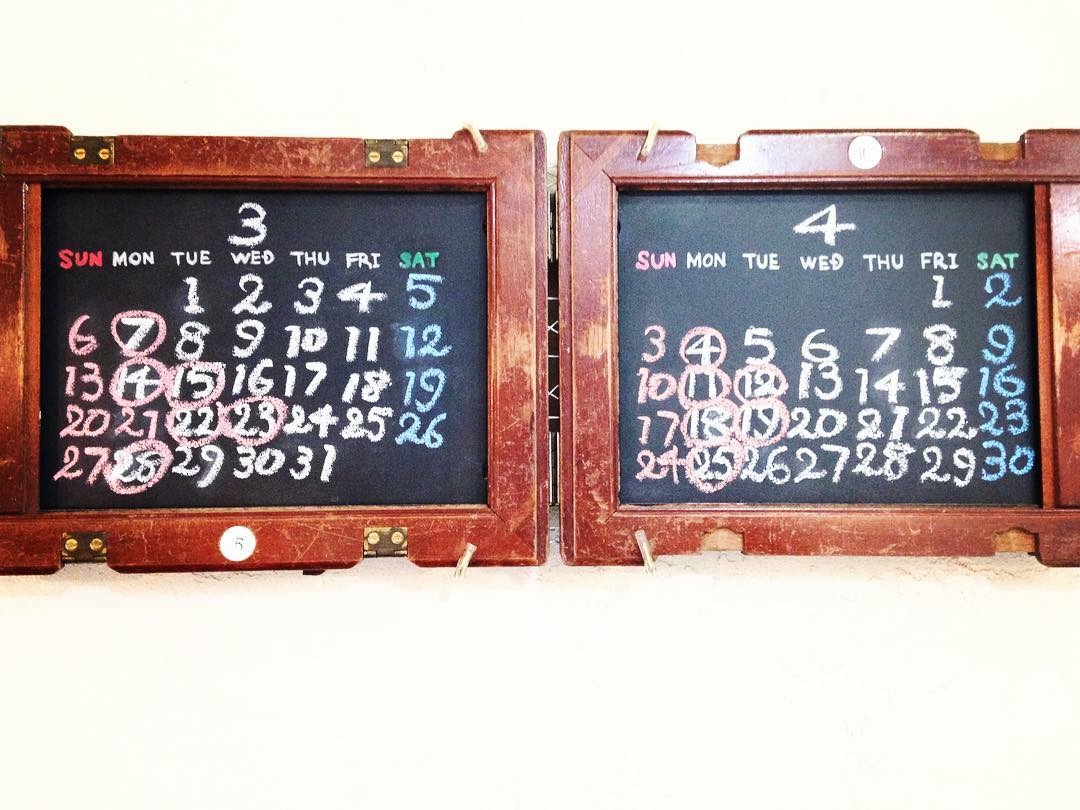 3
SUN MON TUE WED THU FRI SAT
1 2 3 4 5
6 7 8 9 10 11 12
13 14 15 16 17 18 19
20 21 22 23 24 25 26
27 28 29 30 31
5
4
SUN MON TUE WED THU FRI SAT
1 2
3 4 5 6 7 8 9
10 11 12 13 14 15 16
17 18 19 20 21 22 23
24 25 26 27 28 29 30